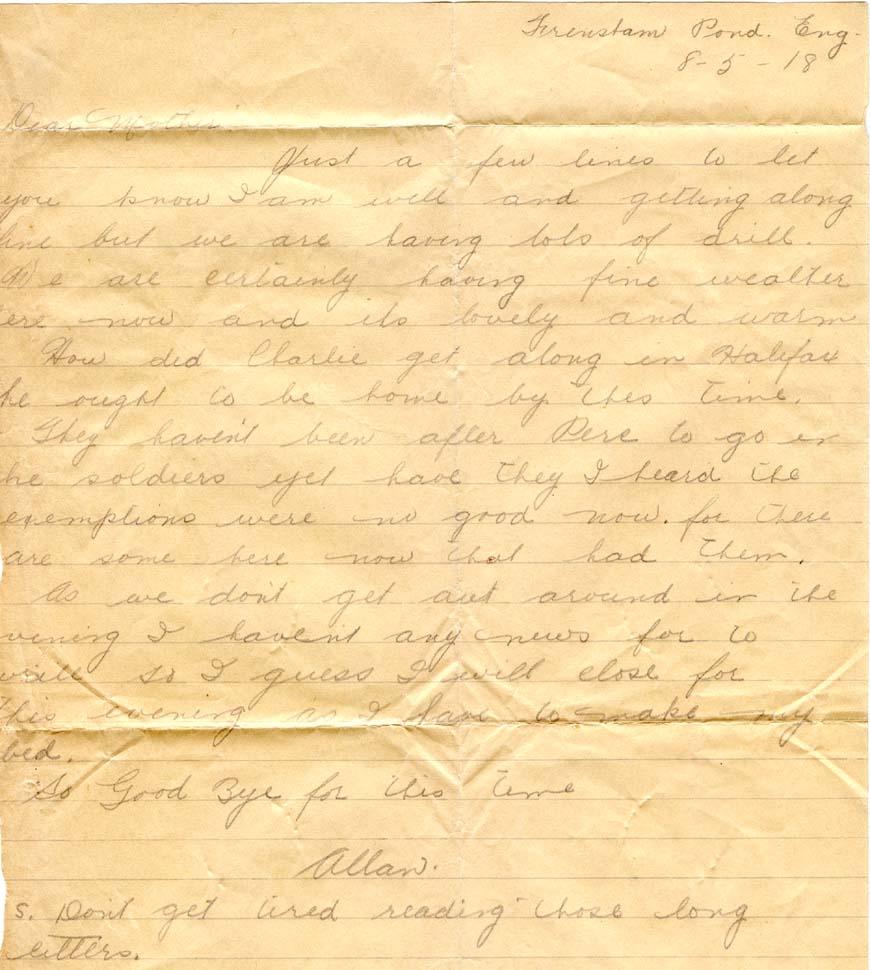 Frenstam Pond. Eng.
8-5-18
Dear Mother
Just a few lines to let
you know I am well and getting along
fine but we are having lots of drill.
We are certainly having fine wealter
ere now and its lovely and warm
How did Charlie get along in Halifax
he ought to be home by this time.
They haven't been after Perc to go in
he soldiers yet have they I heard the
exemptions were no good now. for there
are some here now that had them.
As we don't get out around in the
vening I haven't any news for to
write so I guess I will close for
this evening as I have to make my
bed.
So Good Bye for this time
Allan.
s. Don't get tired reading those long
letters.